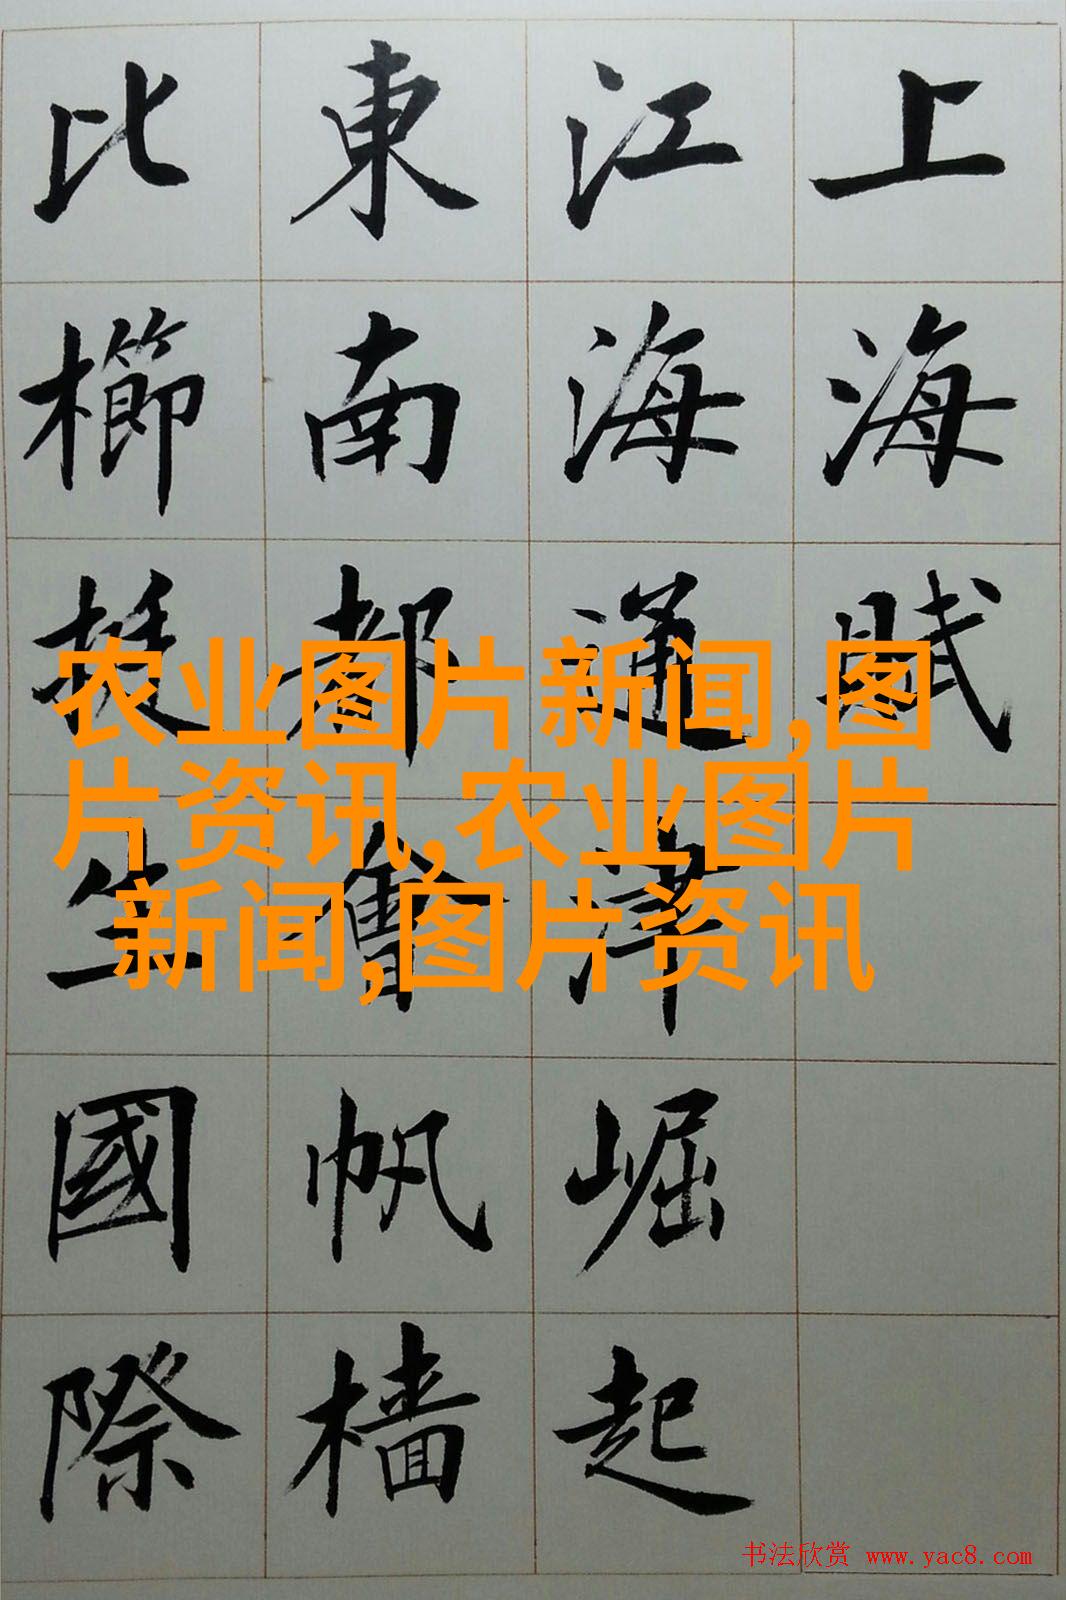 上海賦
江海通津崛起
東南都會帆樯
比櫛挺生國際
农业图片新闻,图
片资讯,农业图片
新闻,图片资讯
书法欣赏 www.yac8.com